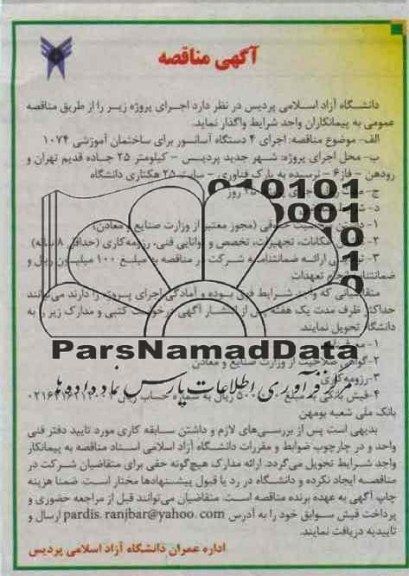 آگهی مناقصه
دانشگاه آزاد اسلامی پردیس در نظر دارد اجرای پروژه زیر را از طریق مناقصه
عمومی به پیمانکاران واحد شرایط واگذار نماید.
الف- موضوع مناقصه: اجرای ۴ دستگاه آسانسور برای ساختمان آموزشی ۱۰۷۴
ب- محل اجرای پروژه: شهر جدید پردیس - کیلومتر ۲۵ جاده قدیم تهران و
رودهن - فاز۶ - نرسیده به پارک فناوری - سایت ۲۵ هکتاری دانشگاه
010101
ج- روز
0001
د-
۱- حقوقی (مجوز معتبر از وزارت صنایع و معادن)
10
۲- امکانات، تجهیزات، تخصص و توانایی فنی، رزومه کاری (حداقل ۸ ساله)
1
۳- ارائه ضمانتنامه شرکت در مناقصه به مبلغ ۱۰۰ میلیون ریال و
0
ضمانتنامه انجام تعهدات
متقاضیانی که واجد شرایط فوق بوده و آمادگی اجرای پروژه را دارند می‌توانند
حداکثر ظرف مدت یک هفته پس از انتشار آگهی درخواست کتبی و مدارک زیر را به
دانشگاه تحویل نمایند.
ParsNamadData
۲- گواهی صلاحیت از وزارت صنایع و معادن
۳- رزومه کاری
مرکز فرآوری اطلاعات پارس نماد داده‌ها
۴- فیش بانکی به مبلغ ریال به شماره حساب
بانک ملی شعبه بومهن
بدیهی است پس از بررسی‌های لازم و داشتن سابقه کاری مورد تایید دفتر فنی
واحد و در چارچوب ضوابط و مقررات دانشگاه آزاد اسلامی اسناد مناقصه به پیمانکار
واجد شرایط تحویل می‌گردد. ارائه مدارک هیچ‌گونه حقی برای متقاضیان شرکت در
مناقصه ایجاد نکرده و دانشگاه در رد یا قبول پیشنهادها مختار است. ضمنا هزینه
چاپ آگهی به عهده برنده مناقصه است. متقاضیان می‌توانند قبل از مراجعه حضوری و
پرداخت فیش سوابق خود را به آدرس pardis.ranjbar@yahoo.com ارسال و
تاییدیه دریافت نمایند.
اداره عمران دانشگاه آزاد اسلامی پردیس